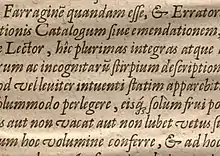 Farraginē quandam esse, & Errator
tionis Catalogum siue emendationem,
e Lector, hîc plurimas integras atque
um ac incognitarū stirpium description
d vel leuiter intuenti statim apparebit
lummodo perlegere, eisq; solum frui po
s aut non vacat aut non lubet vetus st
um hoc volumine conferre, & ad ho